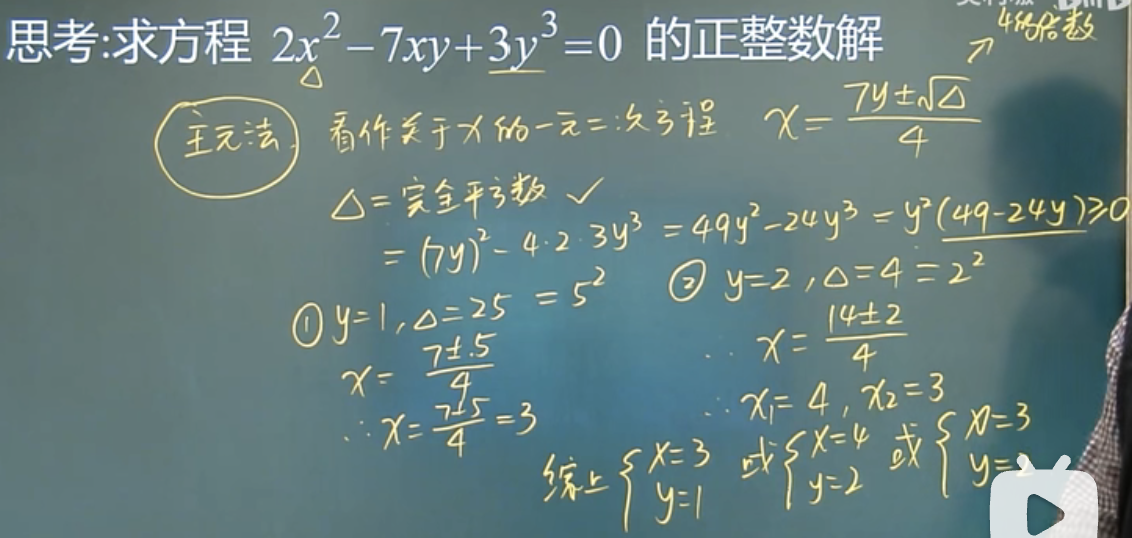 思考:求方程 2x²-7xy+3y³=0 的正整数解
4的倍数
主元法 看作关于x的一元二次方程 x=(7y±√Δ)/4
Δ=完全平方数 ✓
=(7y)²-4·2·3y³=49y²-24y³=y²(49-24y)≥0
①y=1,Δ=25=5² ②y=2,Δ=4=2²
x=(7±5)/4 ∴x=(14±2)/4
∴x=(7±5)/4=3 ∴x₁=4,x₂=3
综上{x=3 y=1 或{x=4 y=2 或{x=3 y=2